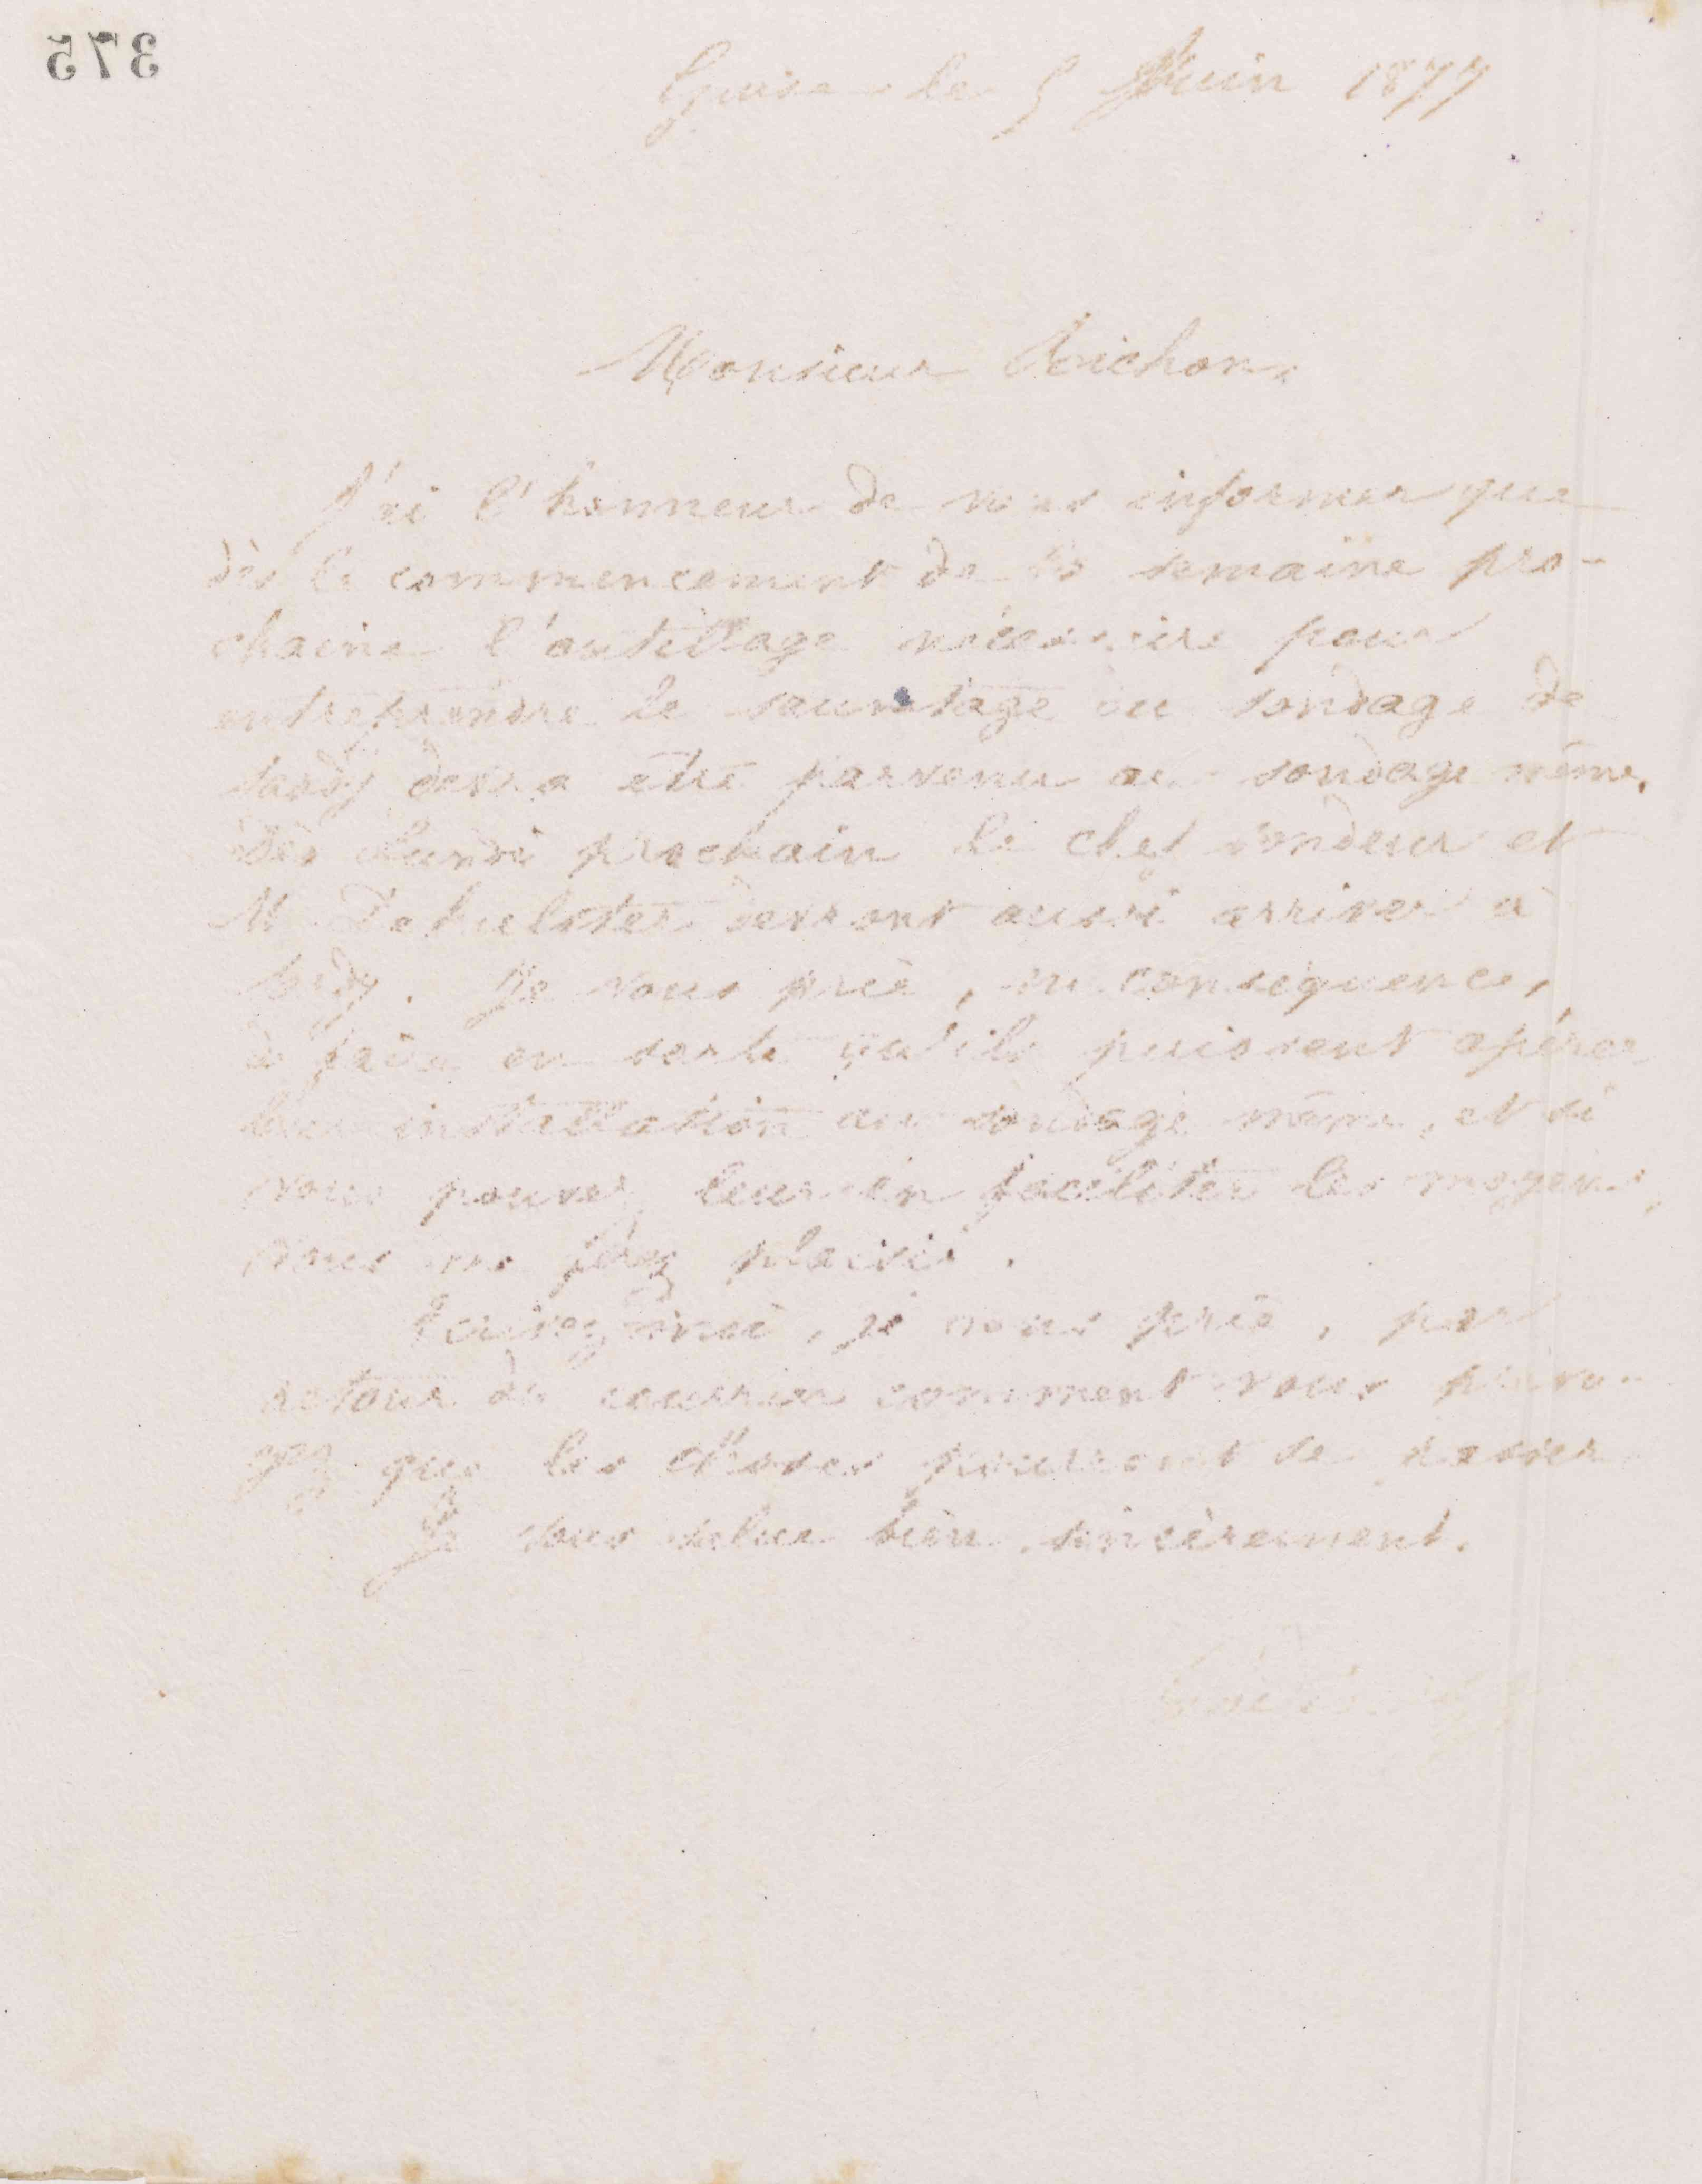 375
Guise le 5 Juin 1877
Monsieur Richon,
J'ai l'honneur de vous informer que
dès le commencement de la semaine pro-
chaine l'outillage nécessaire pour
entreprendre le sauvetage du sondage de
devra être parvenu au sondage même.
Dès lundi prochain le chef sondeur et
M. Dehulster devront aussi arriver à
Je vous prie, en conséquence,
de faire en sorte qu'ils puissent opérer
leur installation au sondage même, et si
vous pouvez leur en faciliter les moyens,
vous me ferez plaisir.
Ecrivez moi, je vous prie, par
retour du courrier comment vous pré-
que les choses pourront se passer
Je vous salue bien sincèrement.
Godin